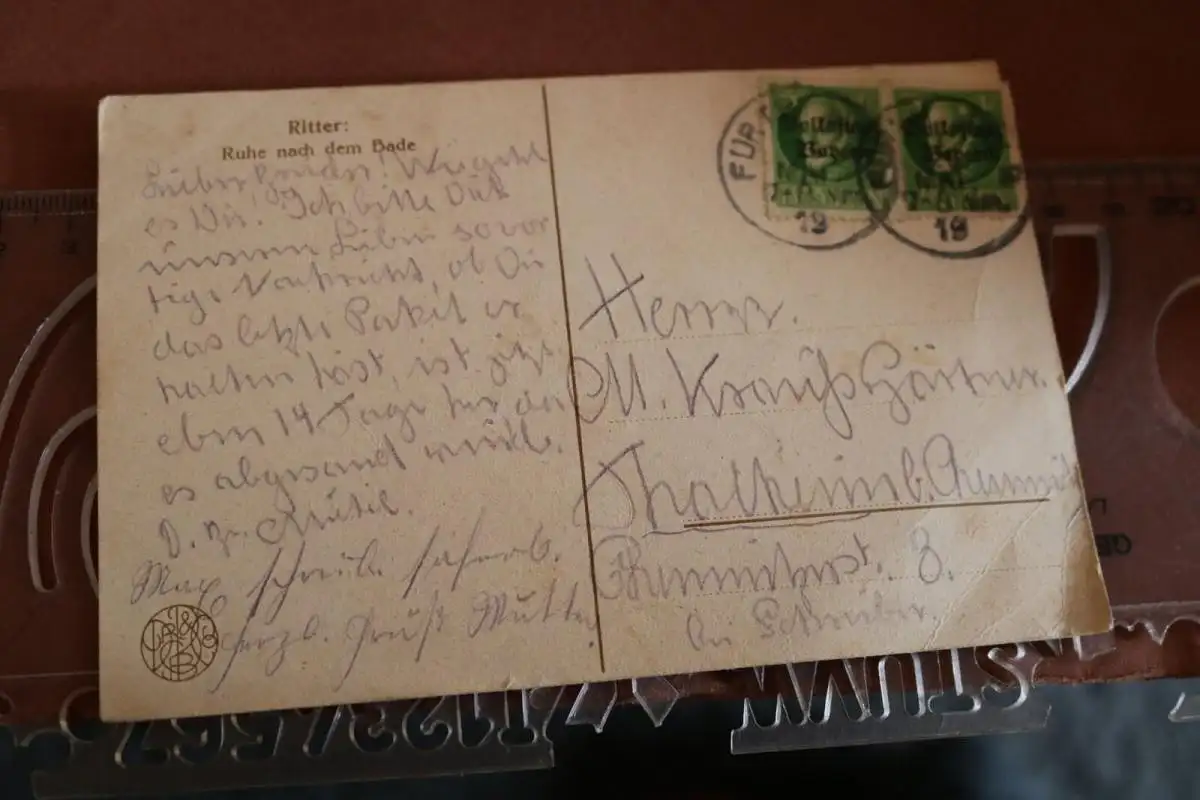 Ritter:
Ruhe nach dem Bade
Lieber Wie geht
es Dir? Ich bitte Dich
unsern Lieben sovor
tige Nachricht, ob Du
das letzte Paket er
halten hast, ist jetzt
eben 14 Tage her da
es abgesand wurde.
Max schreib sofort.
Herzl. Gruß Mutter
FÜR
19
19
Volksstaat
Bayern
Volksstaat
Bayern
Herrn
M. Krauß Gärtner
Thalheim b. Chemnitz
Chemnitzerst. 8.
bei Schreiber.